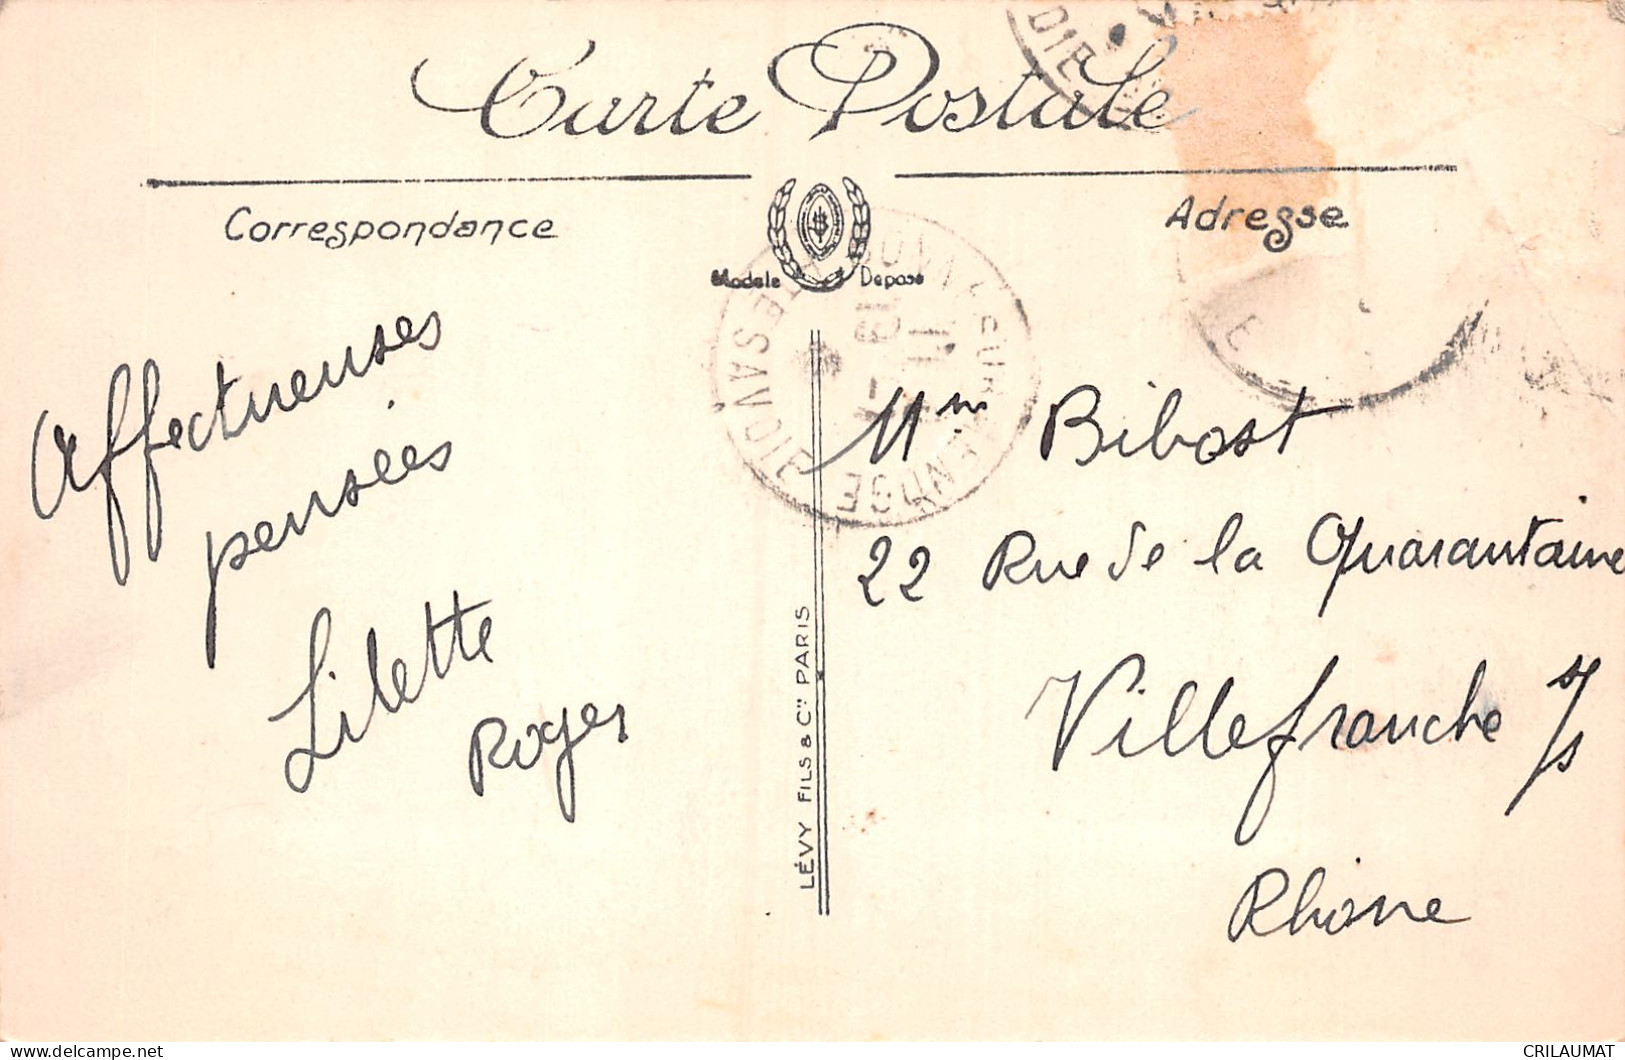 Carte Postale
Correspondance
Adresse
Modèle Déposé
Affectueuses
pensées
Lilette
Roger
LÉVY FILS & Cie PARIS
Mm Bibost
22 Rue de la Quarantaine
Villefranche s/s
Rhône
DIE
delcampe.net
CRILAUMAT